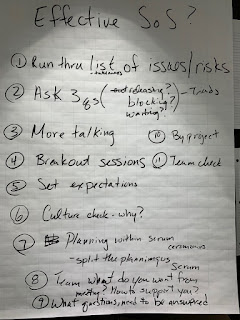 Effective SoS?
① Run thru list of issues/risks
② Ask 3 qs (releasing? - Trends
blocking?
waiting?)
③ More talking
⑩ By project
④ Breakout sessions
⑪ Team check
⑤ Set expectations
⑥ Culture check - why?
⑦ Planning within scrum
ceremonies
- split the planning us
Scrum
⑧ Team what do you want from
meeting? How to support you?
⑨ What questions need to be answered